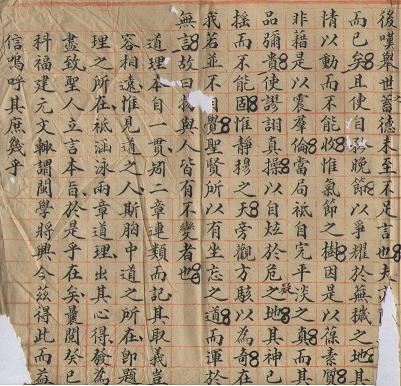 後嘆舉世蓄德未至不足言也夫
而已矣且使自矜晚節以爭耀於無穢之地其
情以動而不能收惟氣節之樹因是以葆素
非藉是以震群倫當局祗自完平淡之真而其
品彌貴使謬詡真操以自炫於危疑之地其神已
搖而不能固惟靜穆之天帝觀方駭以為奇在
我若並不自覺聖賢所以有坐忘之道而渾於
無言故曰我與人皆有不變者也
道理本自一貫周二章連類而記其取義豈
容相遠惟見道之人斯胸中道之所在即題
理之所在祗涵泳兩章道理出其心得發為
盡致聖人立言本旨於是乎在矣量閱癸巳
科福建元文輙謂閩學將興今茲得此而益
信嗚呼其庶幾乎